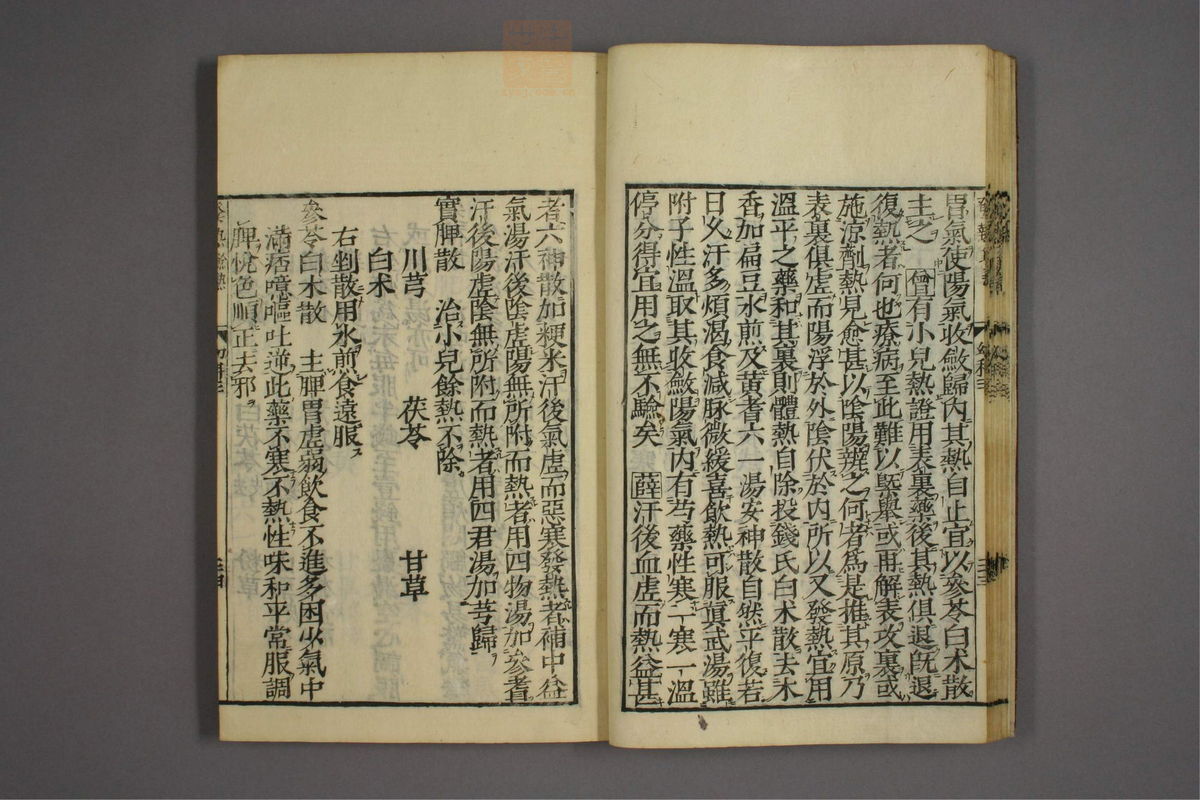 胃氣使陽氣收斂歸内其熱自止宜以參苓白术散
主之 曾有小兒熱證用表裏藥後其熱俱退既退
復熱者何也療病至此難以槩舉或再解表攻裏或
施涼劑熱見愈甚以陰陽辨之何者爲是推其原乃
表裏俱虛而陽浮於外陰伏於内所以又發熱宜用
溫平之藥和其裏則體熱自除投錢氏白术散去木
香加扁豆水煎及黄耆六一湯安神散自然平復若
日久汗多煩渴食減脉微緩喜飲熱可服眞武湯雖
附子性溫取其收斂陽氣内有芍藥性寒一寒一溫
停分得宜用之無不驗矣 薛汗後血虛而熱益甚
者六神散加粳米汗後氣虛而惡寒發熱者補中益
氣湯汗後陰虛陽無所附而熱者用四物湯加參耆
汗後陽虛陰無所附而熱者用四君湯加芎歸
實脾散 治小兒餘熱不除
川芎 茯苓 甘草
白术
右剉散用水煎食遠服
參苓白术散 主脾胃虛弱飲食不進多困少氣中
滿痞噫嘔吐逆此藥不寒不熱性味和平常服調
脾悅色順正去邪